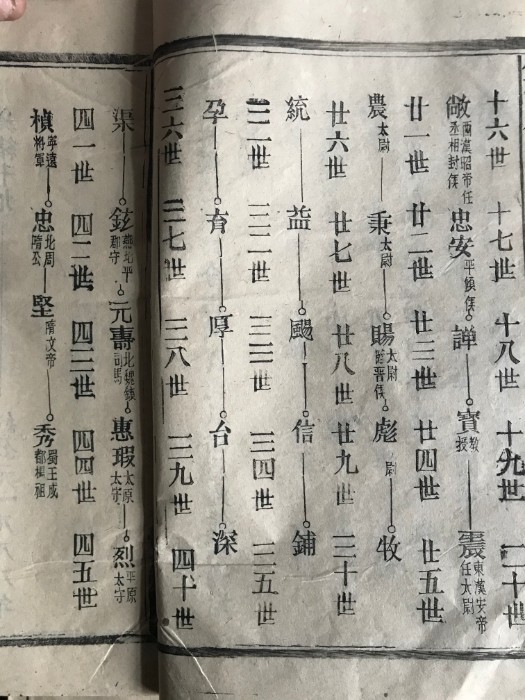 十六世 十七世 十八世 十九世 二十世
敞 西漢昭帝任丞相封侯 忠安 平頃侯 譚 寶 教授 震 東漢安帝任太尉
廿一世 廿二世 廿三世 廿四世 廿五世
農 太尉 秉 太尉 賜 太尉臨晉侯 彪 尉 牧
廿六世 廿七世 廿八世 廿九世 三十世
統 益 颺 信 鋪
三一世 三二世 三三世 三四世 三五世
孕 育 厚 台 深
三六世 三七世 三八世 三九世 四十世
渠 鉉 燕北平郡守 元壽 北魏鎮司馬 惠瑕 太原太守 烈 平原太守
四一世 四二世 四三世 四四世 四五世
楨 寧遠將軍 忠 北周隋公 堅 隋文帝 秀 蜀王成都楊祖